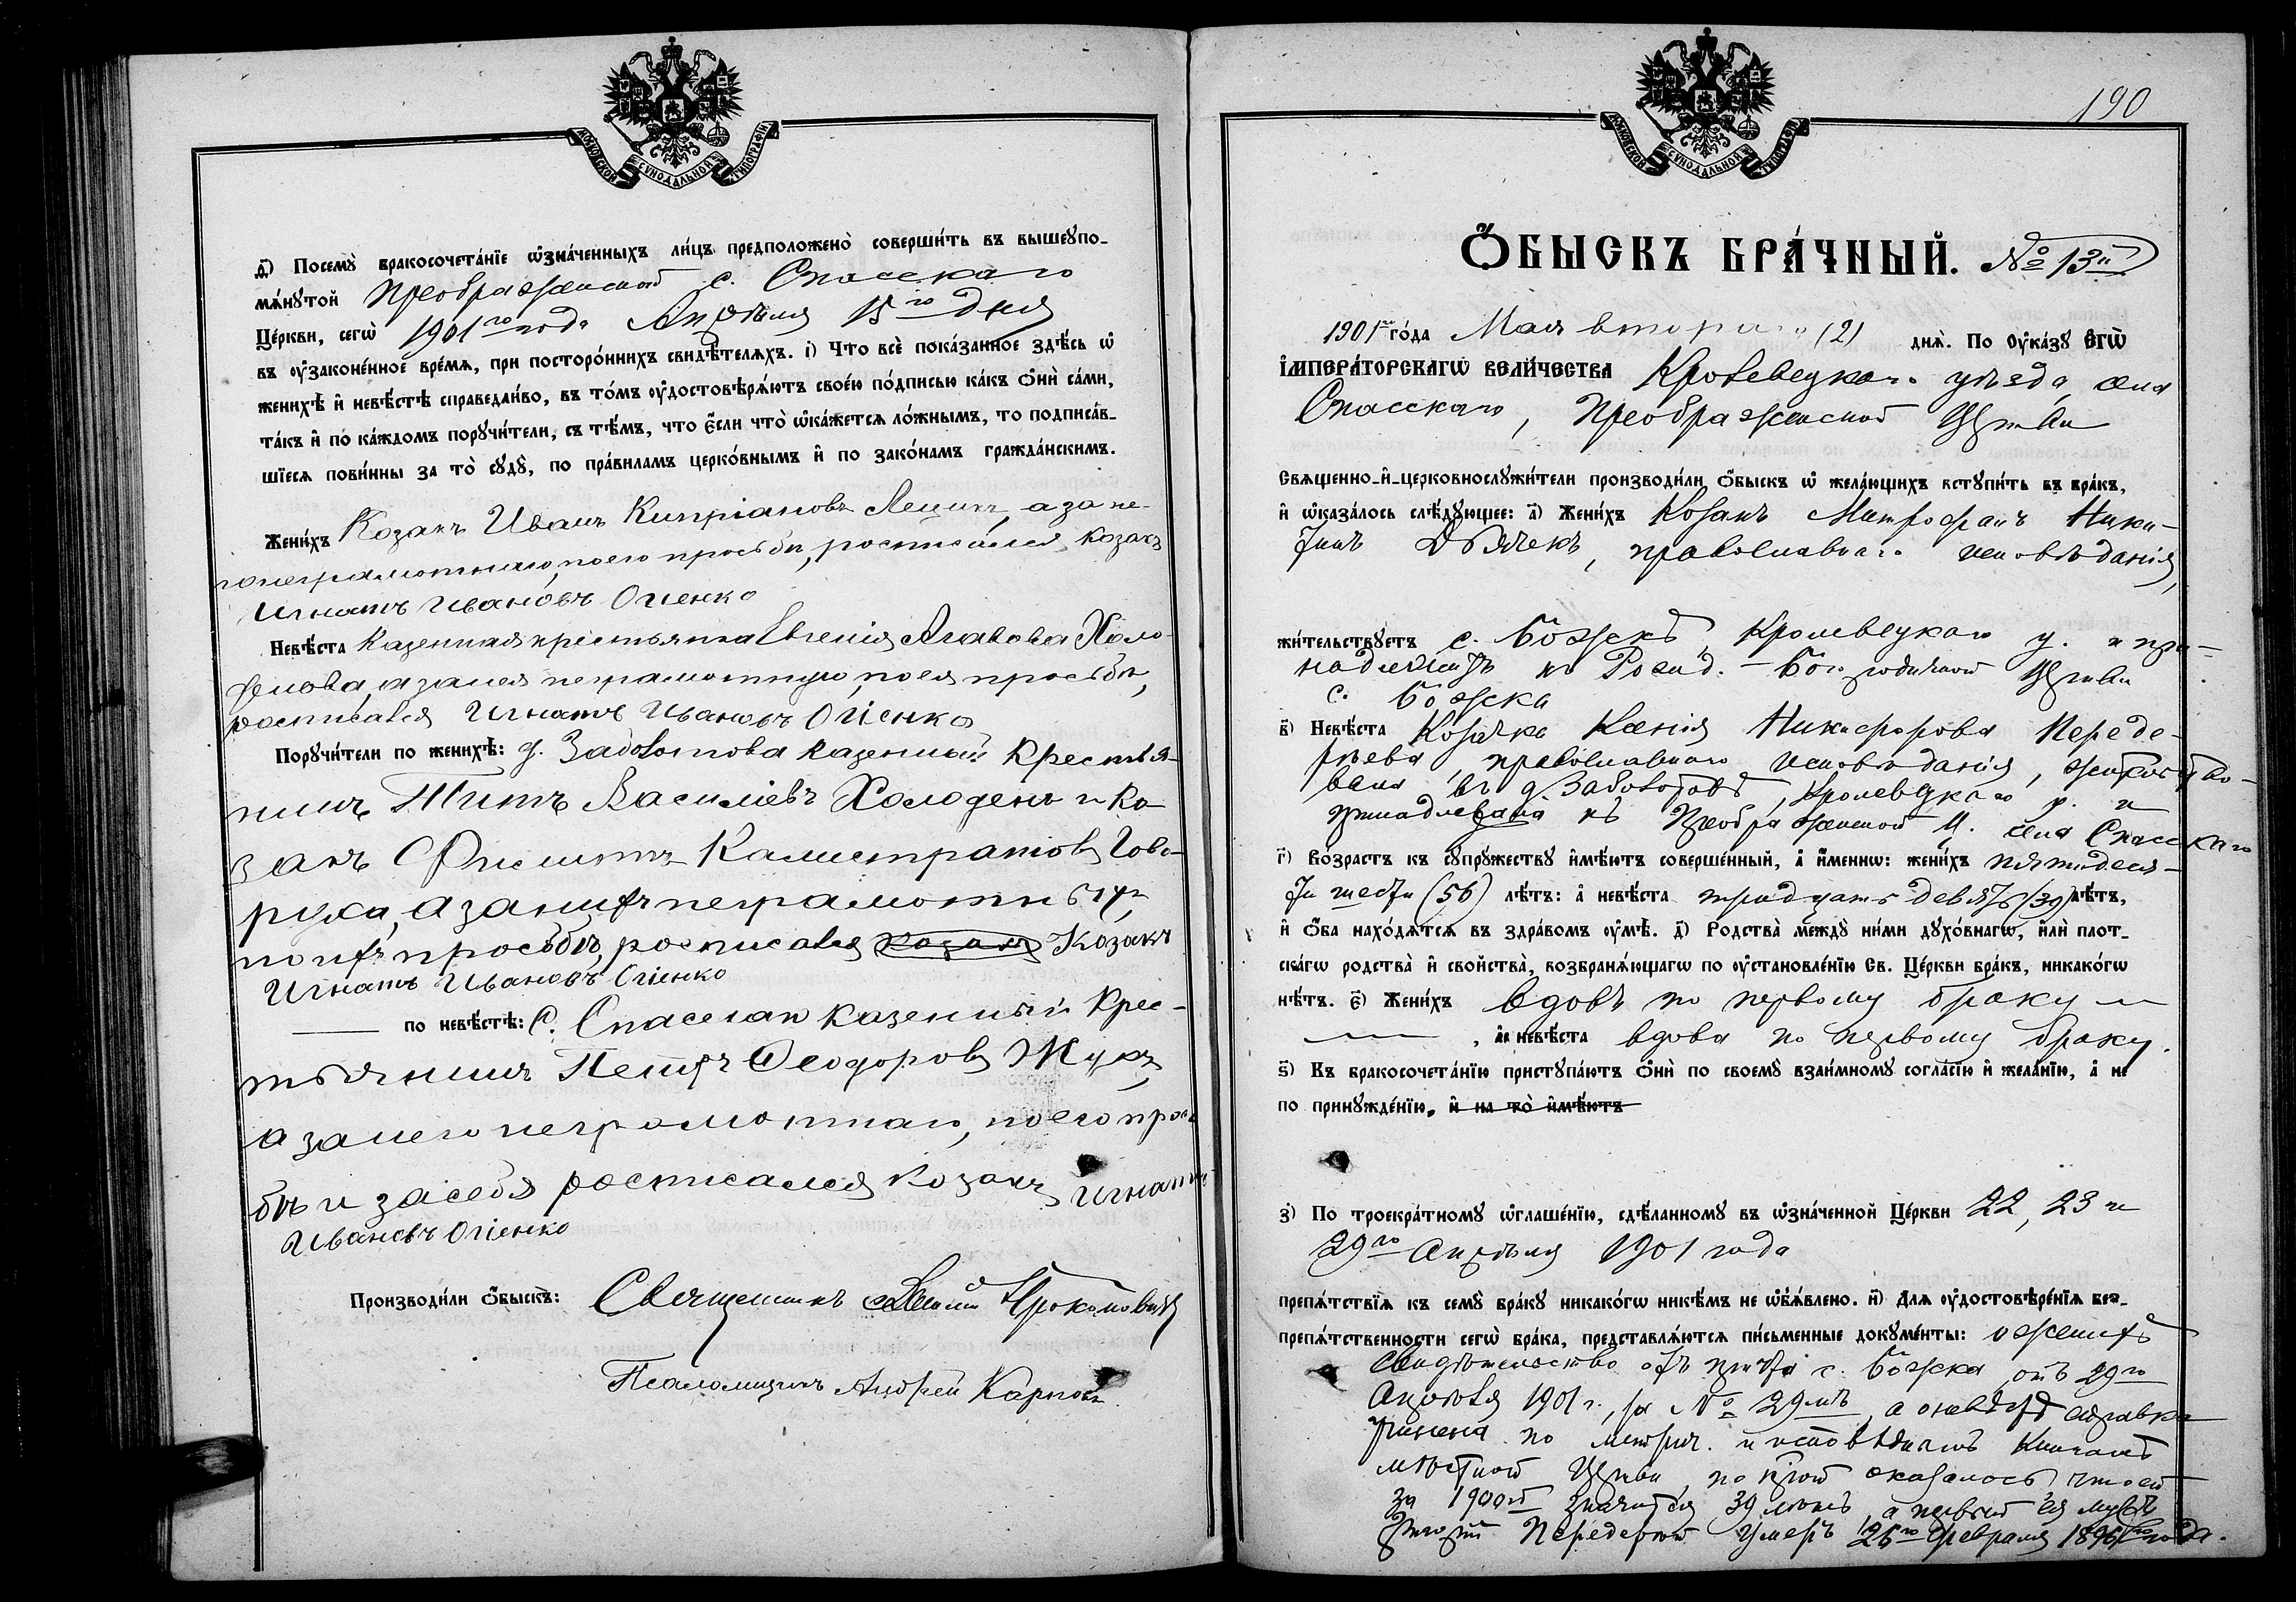 МОСКОВСКОЙ СѴНОДАЛЬНОЙ ТИПОГРАФІИ
д҃) Посемꙋ̀ бракосочета́нїе ѡ҆зна́ченныхъ ли́цъ предположено̀ соверши́ть въ вышеꙋпо-
мѧ́нꙋтой Преображенской с. Спасскаго
Це́ркви, сегѡ̀ 1901го года Апрѣля 15го дня
въ ᲂу҆законе́нное вре́мѧ, при посторо́ннихъ свидѣ́телѧхъ. і҃) Что всѐ пока́занное здѣ́сь ѡ҆
женихѣ̀ и҆ невѣ́стѣ справедли́во, въ то́мъ ᲂу҆достовѣрѧ́ютъ свое́ю по́дписью ка́къ ѻ҆нѝ са́ми,
та́къ и҆ по ка́ждомъ порꙋчи́тели, съ тѣ́мъ, что є҆́сли что̀ ѡ҆ка́жетсѧ ло́жнымъ, то подписа́в-
шїесѧ пови́нны за то̀ сꙋдꙋ̀, по пра́виламъ церко́внымъ и҆ по зако́намъ гражда́нскимъ.
Жени́хъ Козакъ Иванъ Кипріановъ а за не-
го неграмотнаго, по его просьбѣ, росписался козакъ
Игнатъ Ивановъ Огіенко
Невѣ́ста Казенная крестьянка Евгенія Холо-
денова, а за нея неграмотную, по ея просьбѣ,
росписался Игнатъ Ивановъ Огіенко
Порꙋчи́тели по женихѣ̀: д. Заболотова казенный крестья-
нинъ Титъ Василіевъ Холоденъ и ко-
закъ Филиппъ Калистратовъ Гово-
руха, а за нихъ неграмотныхъ,
по ихъ просьбѣ, росписался козакъ Козакъ
Игнатъ Ивановъ Огіенко
по невѣ́стѣ: С. Спаскаго казенный крес-
тьянинъ Петръ Ѳеодоровъ Жукъ,
а за него неграмотнаго, по его прось-
бѣ и за себя росписался козакъ Игнатъ
Ивановъ Огіенко
Производи́ли ѻ҆́быскъ: Священникъ Прокоповичъ
Псаломщикъ Андрей Карпов
190
МОСКОВСКОЙ СѴНОДАЛЬНОЙ ТИПОГРАФІИ
Ѻ҆́БЫСКЪ БРА́ЧНЫЙ. № 13й
1901го го́да Мая втораго (2) днѧ̀. По ᲂу҆ка́зꙋ Є҆ГѠ̀
І҆МПЕРА́ТОРСКАГѠ ВЕЛИ́ЧЕСТВА Кролевецкаго уѣзда, села
Спасскаго, Преображенской Церкви
Свѧще́нно-и҆-церковнослꙋжи́тели производи́ли ѻ҆́быскъ ѡ҆ жела́ющихъ встꙋпи́ть въ бра́къ,
и҆ ѡ҆каза́лось слѣ́дꙋющее: а҃) Жени́хъ Козакъ Митрофанъ Ники-
тинъ Дьячекъ, православнаго исповѣданія,
жи́тельствꙋетъ с. Божскъ, Кролевецкаго у. и при-
надлежитъ къ Рожд. - Богородичной Церкви
с. Божска
в҃) Невѣ́ста Козачка Ксенія Никифорова Переде-
ріева, православнаго исповѣданія, жительство-
вала въ д. Заболотовѣ, Кролевецкаго у. и
принадлежала къ Преображенской ц. села Спасскаго
г҃) Во́зрастъ къ сꙋпрꙋ́жествꙋ и҆мѣ́ютъ соверше́нный, а҆ и҆́меннѡ: жени́хъ пятидеся-
ти шести (56) лѣ́тъ: а҆ невѣ́ста тридцать девять (39) лѣ́тъ,
и҆ ѻ҆́ба нахо́дѧтсѧ въ здра́вомъ ᲂу҆мѣ̀. д҃) Родства̀ междꙋ̀ ни́ми дꙋхо́внагѡ, и҆лѝ плот-
ска́гѡ родства̀ и҆ сво́йства, возбранѧ́ющагѡ по ᲂу҆становле́нїю Св. Це́ркви бра́къ, никако́гѡ
нѣ́тъ. є҃) Жени́хъ вдовъ по первому браку
, а҆ невѣ́ста вдова по первому браку.
ѕ҃) Къ бракосочета́нїю пристꙋпа́ютъ ѻ҆нѝ по своемꙋ̀ взаи́мномꙋ согла́сїю и҆ жела́нїю, а҆ не
по принꙋжде́нїю, и҆ на то̀ и҆мѣ́ютъ
з҃) По троекра́тномꙋ ѡ҆глаше́нїю, сдѣ́ланномꙋ въ ѡ҆зна́ченной Це́ркви 22, 23 и
29го Апрѣля 1901 года
препѧ́тствїѧ къ семꙋ̀ бра́кꙋ никако́гѡ никѣ́мъ не ѡ҆б̾ѧ́влено. и҃) Длѧ ᲂу҆достовѣре́нїѧ без-
препѧ́тственности сегѡ̀ бра́ка, представлѧ́ютсѧ пи́сьменные докꙋме́нты: о женихѣ
свидѣтельство отъ причта с. Божска отъ 29го
Апрѣля 1901 г., за № 29мъ, а о невѣстѣ справка
учинена по метрич. и исповѣднымъ книгамъ
мѣстной Церкви, по коей оказалось, что ей
за 1900й значится 39 лѣтъ, а первый ея мужъ
Передерій умеръ 26го февраля года.